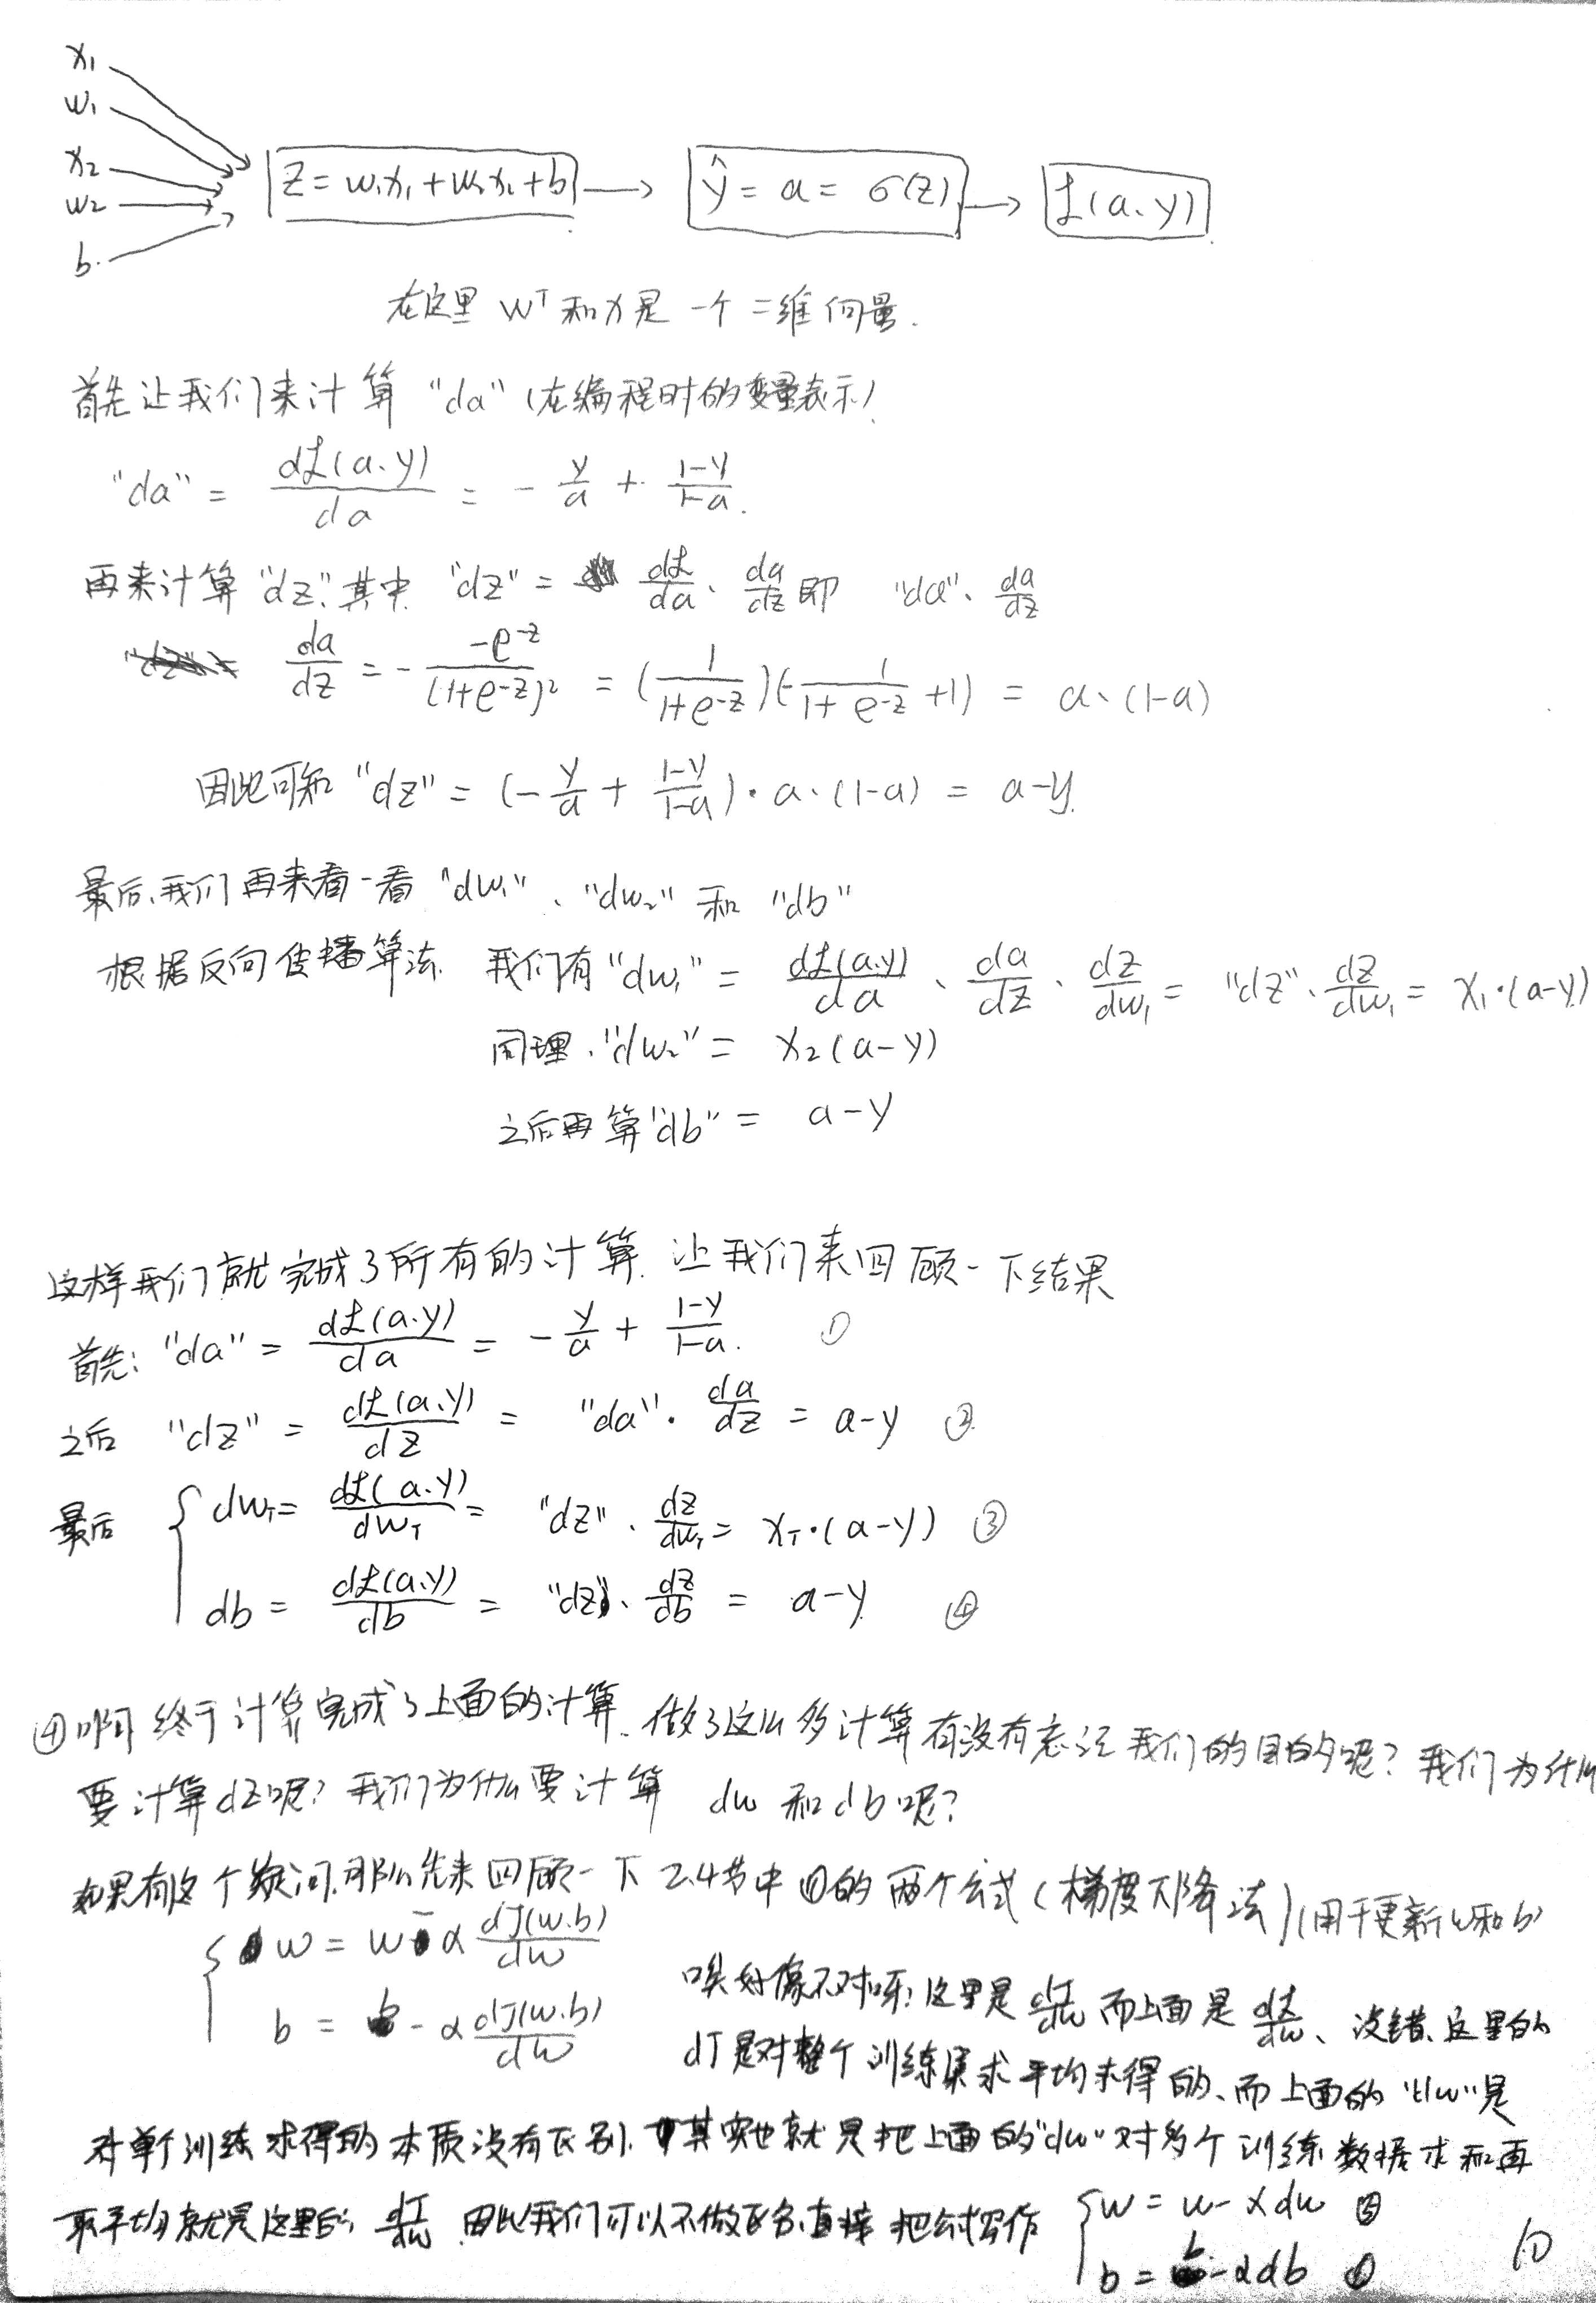 x₁
w₁
x₂
w₂
b.
z = w₁x₁ + w₂x₂ + b → ŷ = a = σ(z) → ℒ(a、y)
在这里 wᵀ 和 x 是 一个 二维 向量.
首先让我们来计算 "da" (在编程时的变量表示)
"da" = dℒ(a、y)/da = - y/a + (1-y)/(1-a).
再来计算"dz". 其中 "dz" = dℒ/da、da/dz 即 "da"、da/dz
da/dz = - -e^(-z)/(1+e^(-z))² = (1/(1+e^(-z)))(-1/(1+e^(-z)) +1) = a、(1-a)
因此可知 "dz" = (- y/a + (1-y)/(1-a)) · a、(1-a) = a-y.
最后、我们再来看一看 "dw₁"、"dw₂" 和 "db"
根据反向传播算法. 我们有"dw₁" = dℒ(a.y)/da、da/dz、dz/dw₁ = "dz"、dz/dw₁ = x₁·(a-y)
同理."dw₂" = x₂(a-y)
之后再算"db" = a-y
这样我们就完成了所有的计算. 让我们来回顾一下结果
首先: "da" = dℒ(a.y)/da = - y/a + (1-y)/(1-a). ①
之后 "dz" = dℒ(a、y)/dz = "da"· da/dz = a-y ②
最后 { dwᴛ = dℒ(a.y)/dwᴛ = "dz"、dz/dwᴛ = xᴛ·(a-y) ③
db = dℒ(a.y)/db = "dz"、dz/db = a-y ④
④ 啊 终于计算完成了上面的计算. 做了这么多计算有没有忘记我们的目的呢? 我们为什么
要计算dz呢? 我们为什么要计算 dw 和 db 呢?
如果有这个疑问,那么先来回顾一下 2.4节中 ①的两个公式(梯度下降法)(用于更新w和b)
{ w = w - α dJ(w.b)/dw
b = b - α dJ(w.b)/dw
咦好像不对呀! 这里是 dJ/dw 而上面是 dℒ/dw、没错、这里的
dJ是对整个训练集求平均求得的、而上面的 "dw"是
对单个训练求得的 本质没有区别. 其实也就是把上面的"dw"对多个训练数据求和再
取平均就是这里的 dJ/dw. 因此我们可以不做区分,直接 把公式写作 { w = w - αdw ⑤
b = b - αdb ⑥